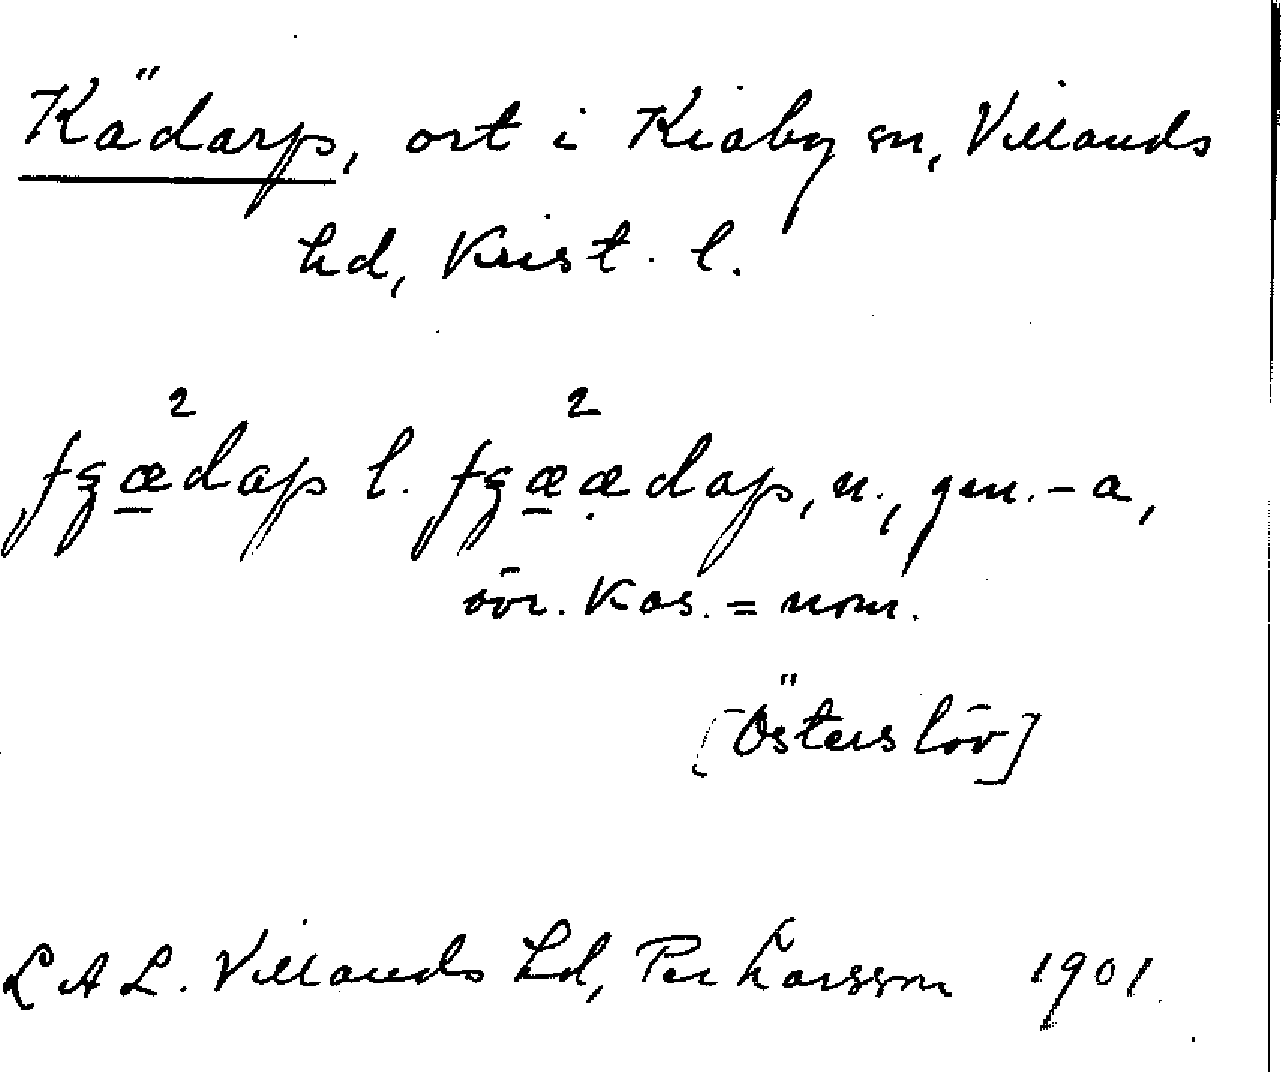 Kädarp, ort i Kiaby sn, Villands
hd, Krist. l.
2 2
fʒædap l. fʒææ̣dap, n., gen. -a,
övr. Kas. = nom.
[Österslöv]
LAL. Villands hd, Per Larsson 1901.